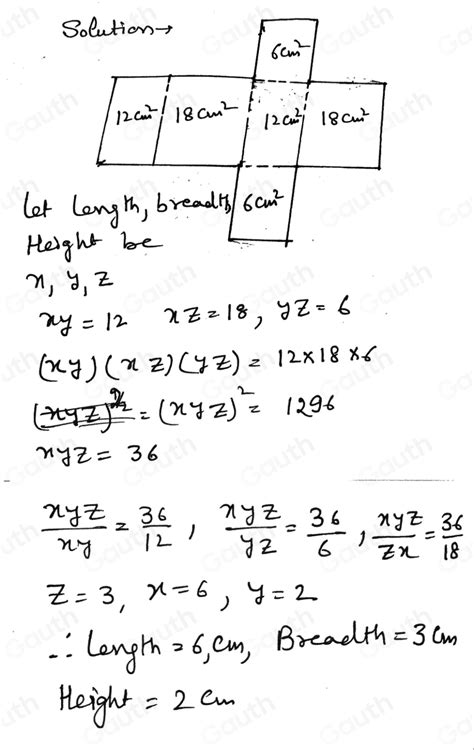 Solution→
6cm²
12cm² 18cm² 12cm² 18cm²
6cm²
let length, breadth,
Height be
x, y, z
xy = 12 xz = 18, yz = 6
(xy)(xz)(yz) = 12×18×6
= (xyz)² = 1296
xyz = 36
xyz/xy = 36/12, xyz/yz = 36/6, xyz/zx = 36/18
z = 3, x = 6, y = 2
∴ length = 6, cm, Breadth = 3 cm
Height = 2 cm
Gauth